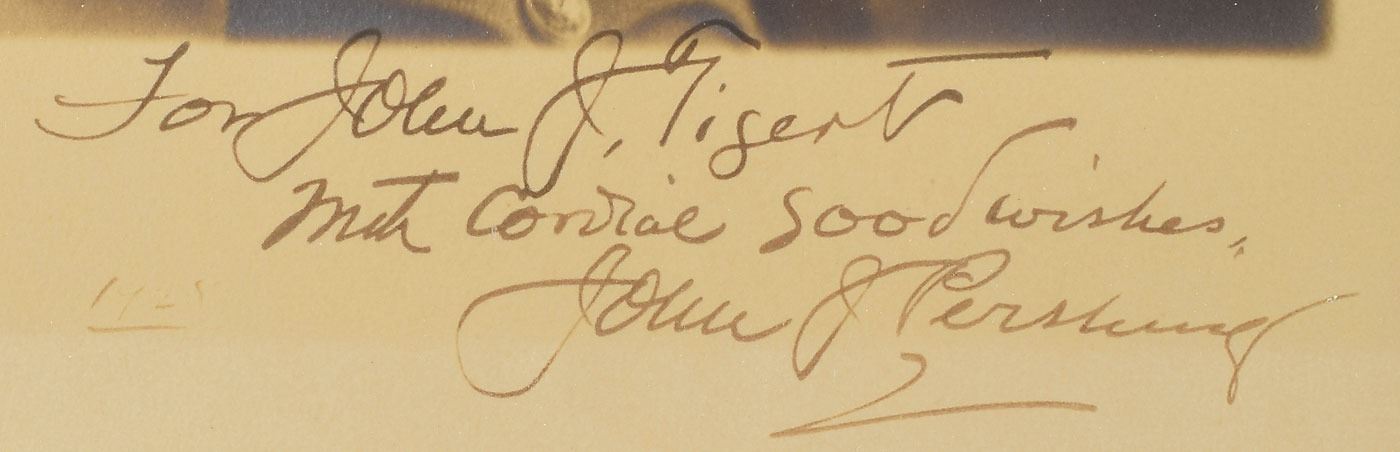 For John J. Tigert
With cordial good wishes,
John J Pershing